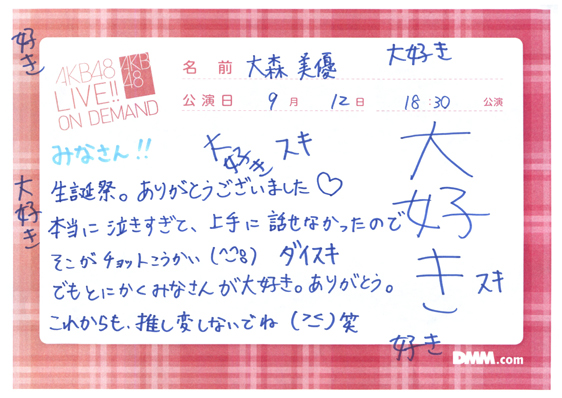 好き
AKB48
LIVE!!
ON DEMAND
AKB
48
名前 大森美優 大好き
公演日 9月 12日 18:30 公演
みなさん!!
大好き スキ
生誕祭。ありがとうございました♡
本当に泣きすぎて、上手に話せなかったので
そこがチョットこうかい (^^8) ダイスキ
でもとにかくみなさんが大好き。ありがとう。
これからも、推し変しないでね (>_<)笑
大好き
大好き
スキ
好き
DMM.com